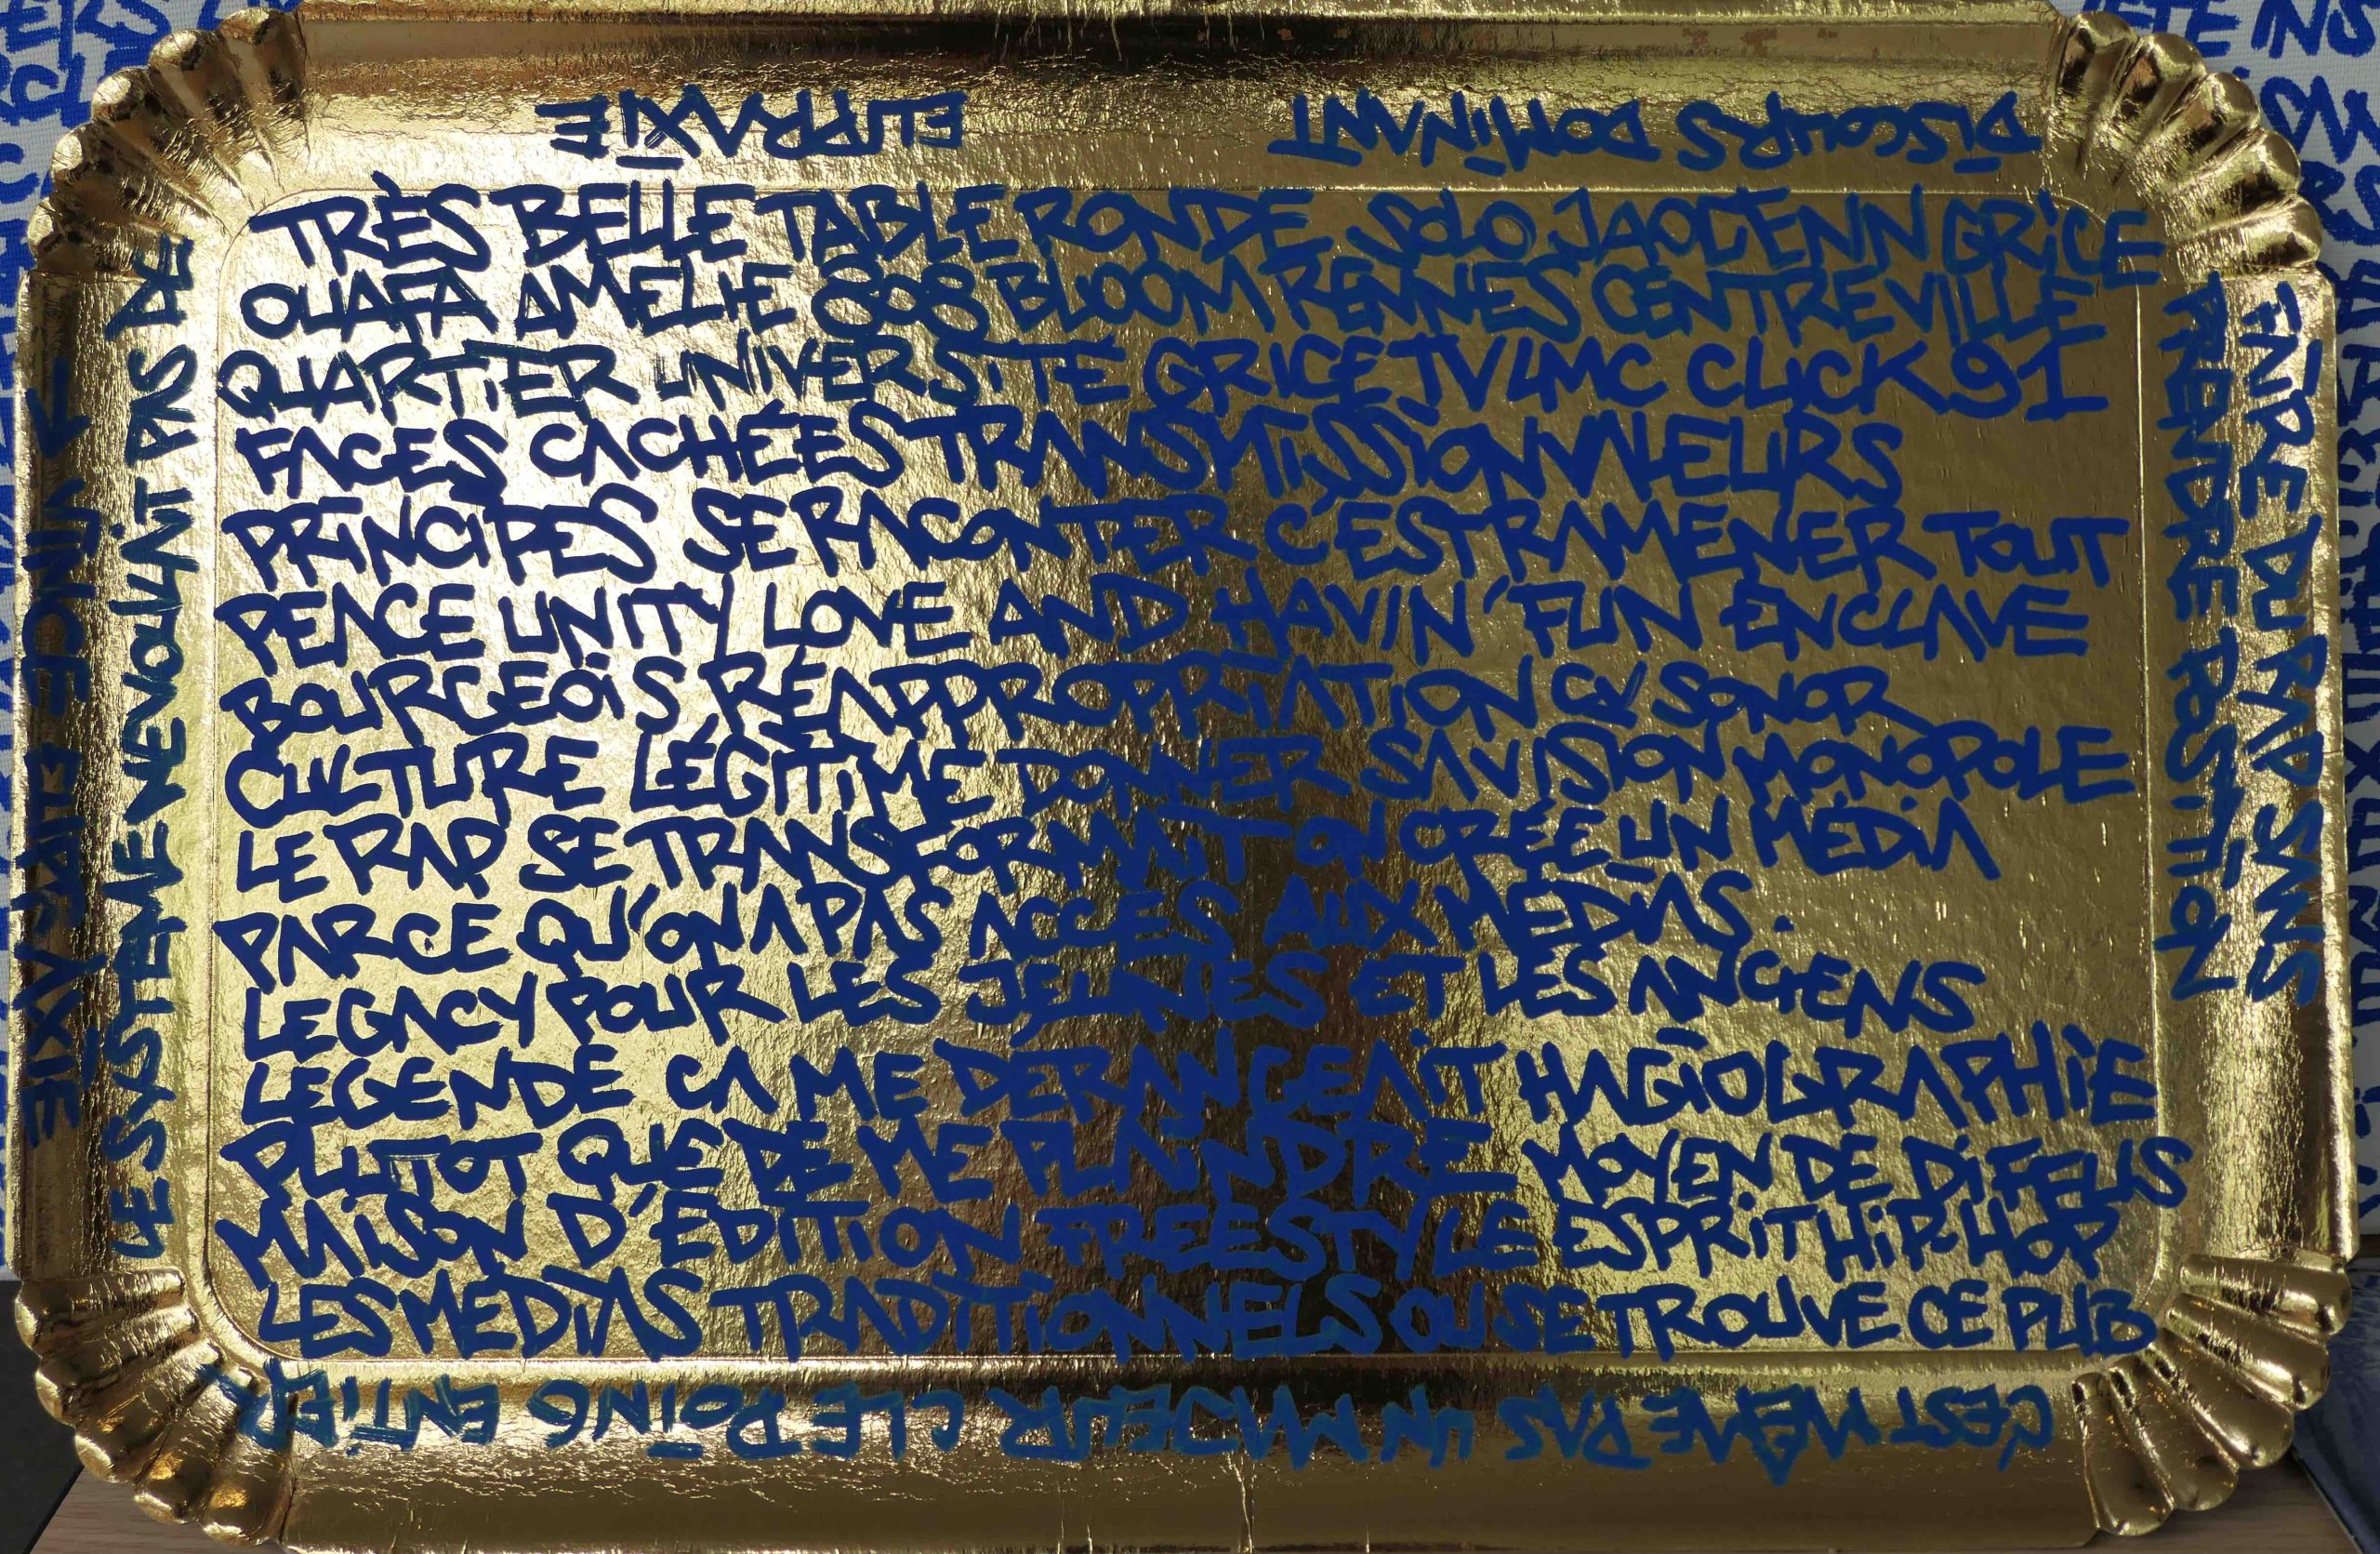 DISCOURS DOMINANT
EURRAXIE
TRÈS BELLE TABLE RONDE SOLO JAOCENN GRICE
OUAFA AMELIE 808 BLOOM RENNES CENTRE VILLE
QUARTIER UNIVERSITÉ GRICE TV LMC CLICK 91
FACES CACHÉES TRANSMISSION VALEURS
PRINCIPES SE RACONTER C'EST RAMENER TOUT
PEACE UNITY LOVE AND HAVIN' FUN ENCLAVE
BOURGEOIS RÉAPPROPRIATION CV SONOR
CULTURE LÉGITIME DONNER SA VISION MONOPOLE
LE RAP SE TRANSFORMAIT ON CRÉE UN MÉDIA
PARCE QU'ON A PAS ACCÈS AUX MÉDIAS.
LEGACY POUR LES JEUNES ET LES ANCIENS
LEGENDE CA ME DERANGEAIT HAGIOGRAPHIE
PLUTOT QUE DE ME PLAINDRE MOYEN DE DIFFUS
MAISON D'ÉDITION FREESTYLE ESPRIT HIP-HOP
LES MEDIAS TRADITIONNELS OU SE TROUVE CE PUB
C'EST MÊME PAS UN MAJEUR C LE POING ENTIER
LE SYSTEME NE VOULAIT PAS DE
FAIRE DU RAP SANS
PRENDRE POSITION